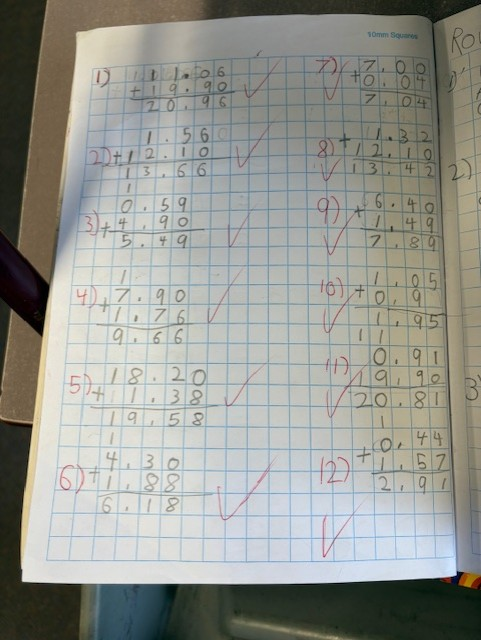 10mm Squares
1) 1 1 1.06
+ 19.90
20.96
1.560
2) + 12.10
13.66
1
0.59
3) + 4.90
5.49
1
4) 7.90
+ 1.76
9.66
5) 18.20
+ 1.38
19.58
1
4.30
6) + 1.88
6.18
7) 7.00
+ 0.04
7.04
+ 1.32
8) 12.10
13.42
9) + 6.40
1.49
7.89
10) 1.05
+ 0.9
1.95
1 1
0.91
11) 19.90
20.81
1
0.44
+ 1.57
12) 2.91
Ro
1)
2)
3)